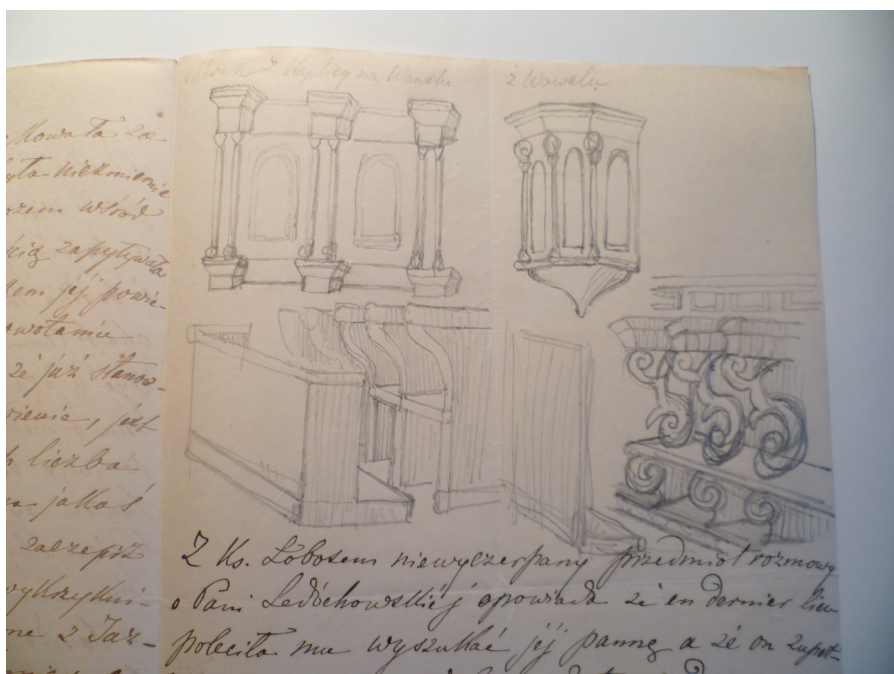 kowała za
była niezmiernie
wśród
zapytywała
jej powie-
że już stanow-
, jest
liczba
jakoś
zaczepić
wykrzykni-
z Jaz-
z Kaplicy na Wawelu
z Wawelu
Z Ks. Lobosem niewyczerpany przedmiot rozmowy
o Pani Ledóchowskiéj opowiada że en dernier lieu
poleciła mu wyszukać jej pannę a że on zupeł-